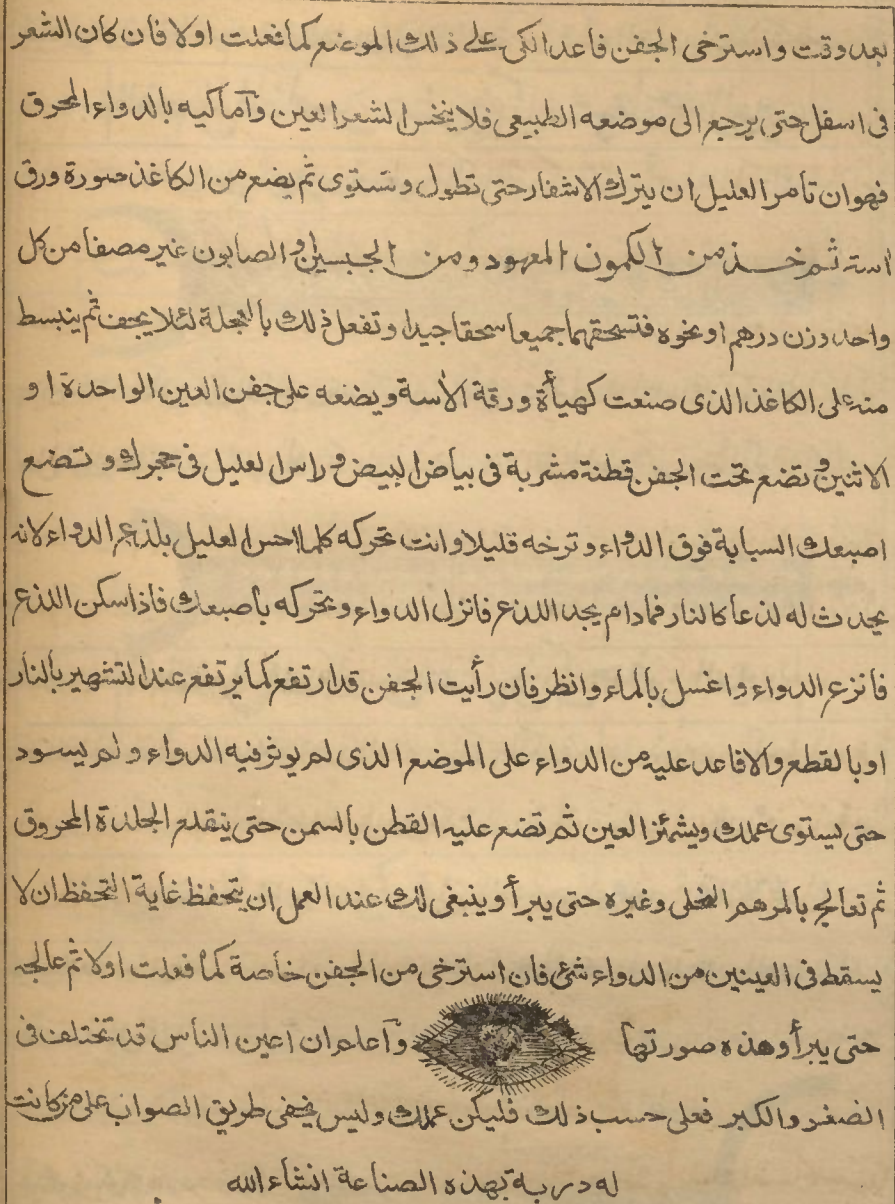 بعد وقت واسترخى الجفن فاعد الكى على ذلك الموضع كما فعلت اولا فان كان الشعر
فى اسفل حتى يرجع الى موضعه الطبيعى فلا ينخس الشعر العين وآما كيه بالدواء المحرق
فهو ان تأمر العليل ان يترك الاشفار حتى تطول وتستوى ثم يضع من الكاغذ صورة ورق
اسة ثم خذ من الكمون المعهود ومن الجبسين والصابون غير مصفا من كل
واحد وزن درهم او نحوه فتسحقهما جميعا سحقا جيدا وتفعل ذلك بالعجلة لئلا يجف ثم ينبسط
منه على الكاغذ الذى صنعت كهيأة ورقة الأسة ويضعه على جفن العين الواحدة او
الاثنين وتضع تحت الجفن قطنة مشربة فى بياض البيض وراس العليل فى حجرك وتضع
اصبعك السبابة فوق الدواء وترخه قليلا وانت تحركه كلما احس العليل بلذع الدواء لانه
يحدث له لذعا كالنار فما دام يجد اللذع فانزل الدواء وتحركه بأصبعك فاذا سكن اللذع
فانزع الدواء واغسل بالماء وانظر فان رأيت الجفن قد ارتفع كما يرتفع عند التشمير بالنار
او بالقطع والا فاعد عليه من الدواء على الموضع الذى لم يوثر فيه الدواء ولم يسود
حتى يستوى عملك ويشمئز العين ثم تضع عليه القطن بالسمن حتى ينقلع الجلدة المحروق
ثم تعالج بالمرهم النخلى وغيره حتى يبرأ وينبغى لك عند العمل ان يتحفظ غاية التحفظ ان لا
يسقط فى العينين من الدواء شئ فان استرخى من الجفن خاصة كما فعلت اولا ثم عالجه
حتى يبرأ وهذه صورتها وآعلم ان اعين الناس قد تختلف فى
الصغر والكبر فعلى حسب ذلك فليكن عملك وليس يخفى طريق الصواب على من كانت
له دربة بهذه الصناعة انشاء الله